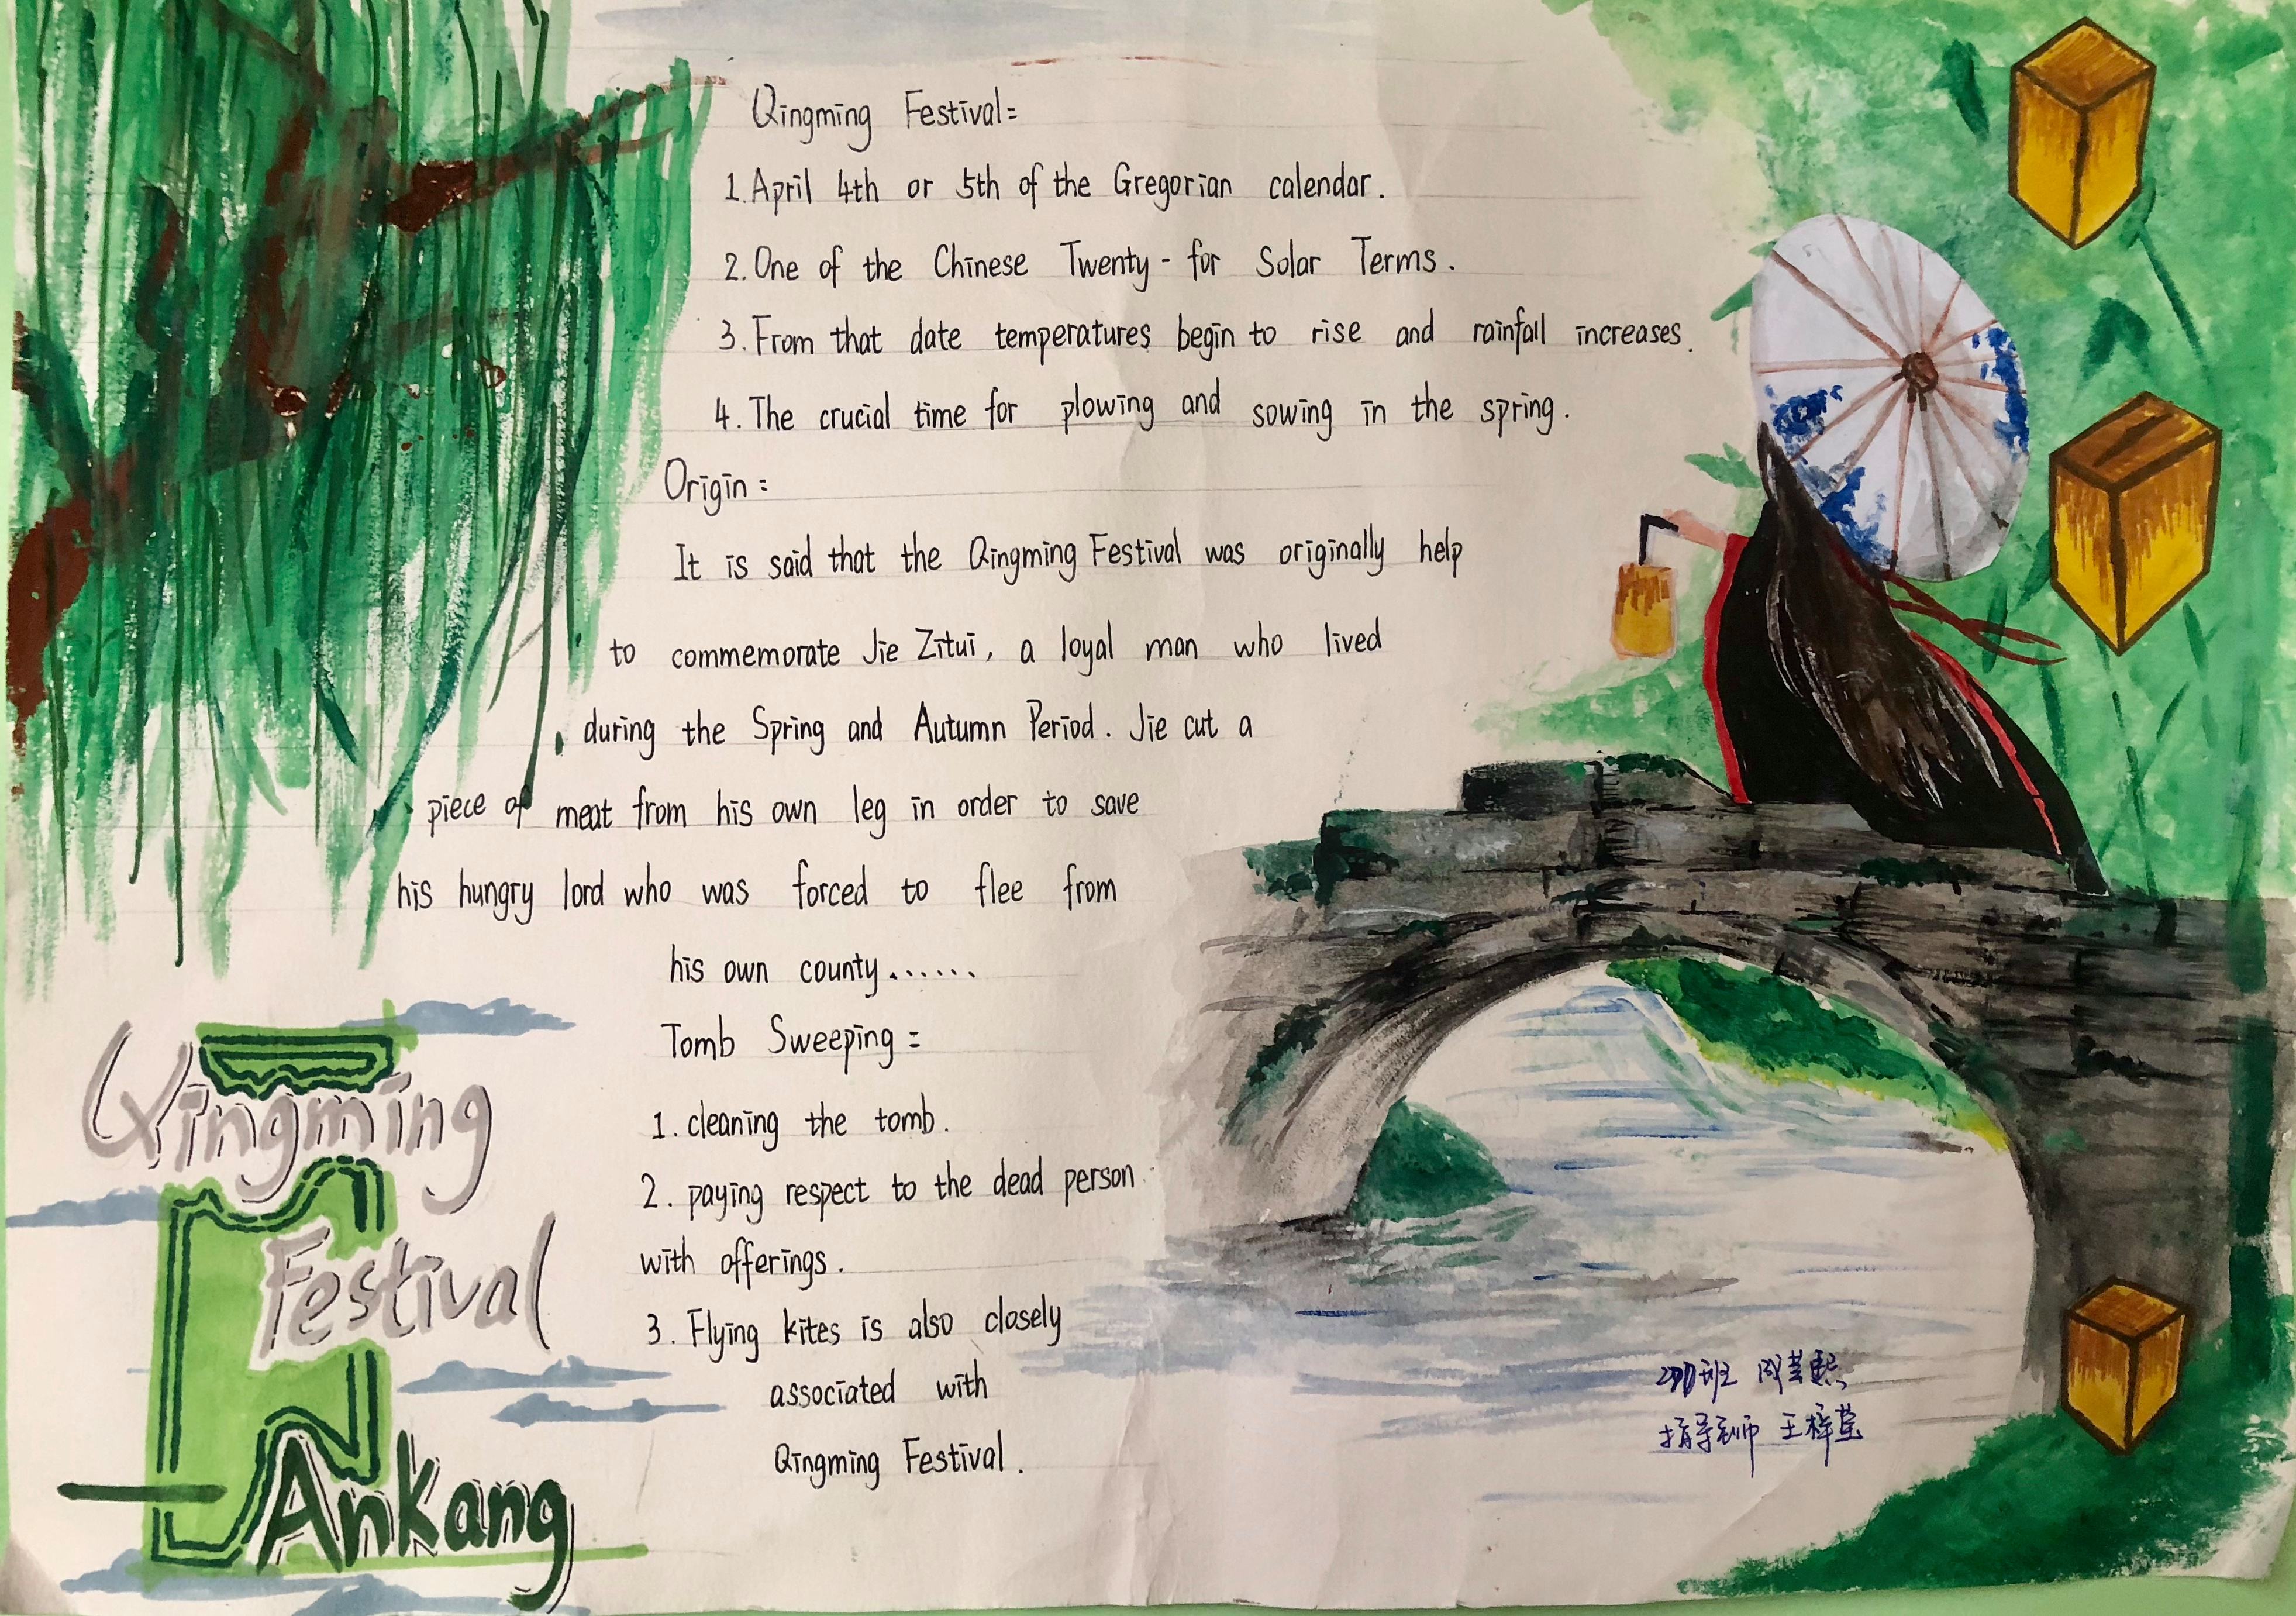 Qingming Festival:
1. April 4th or 5th of the Gregorian calendar.
2. One of the Chinese Twenty-for Solar Terms.
3. From that date temperatures begin to rise and rainfall increases.
4. The crucial time for plowing and sowing in the spring.
Origin:
It is said that the Qingming Festival was originally help
to commemorate Jie Zitui, a loyal man who lived
during the Spring and Autumn Period. Jie cut a
piece of meat from his own leg in order to save
his hungry lord who was forced to flee from
his own county......
Tomb Sweeping:
1. cleaning the tomb.
2. paying respect to the dead person
with offerings.
3. Flying kites is also closely
associated with
Qingming Festival.
Qingming
Festival
Ankang
班 周
指导老师 王梓莹